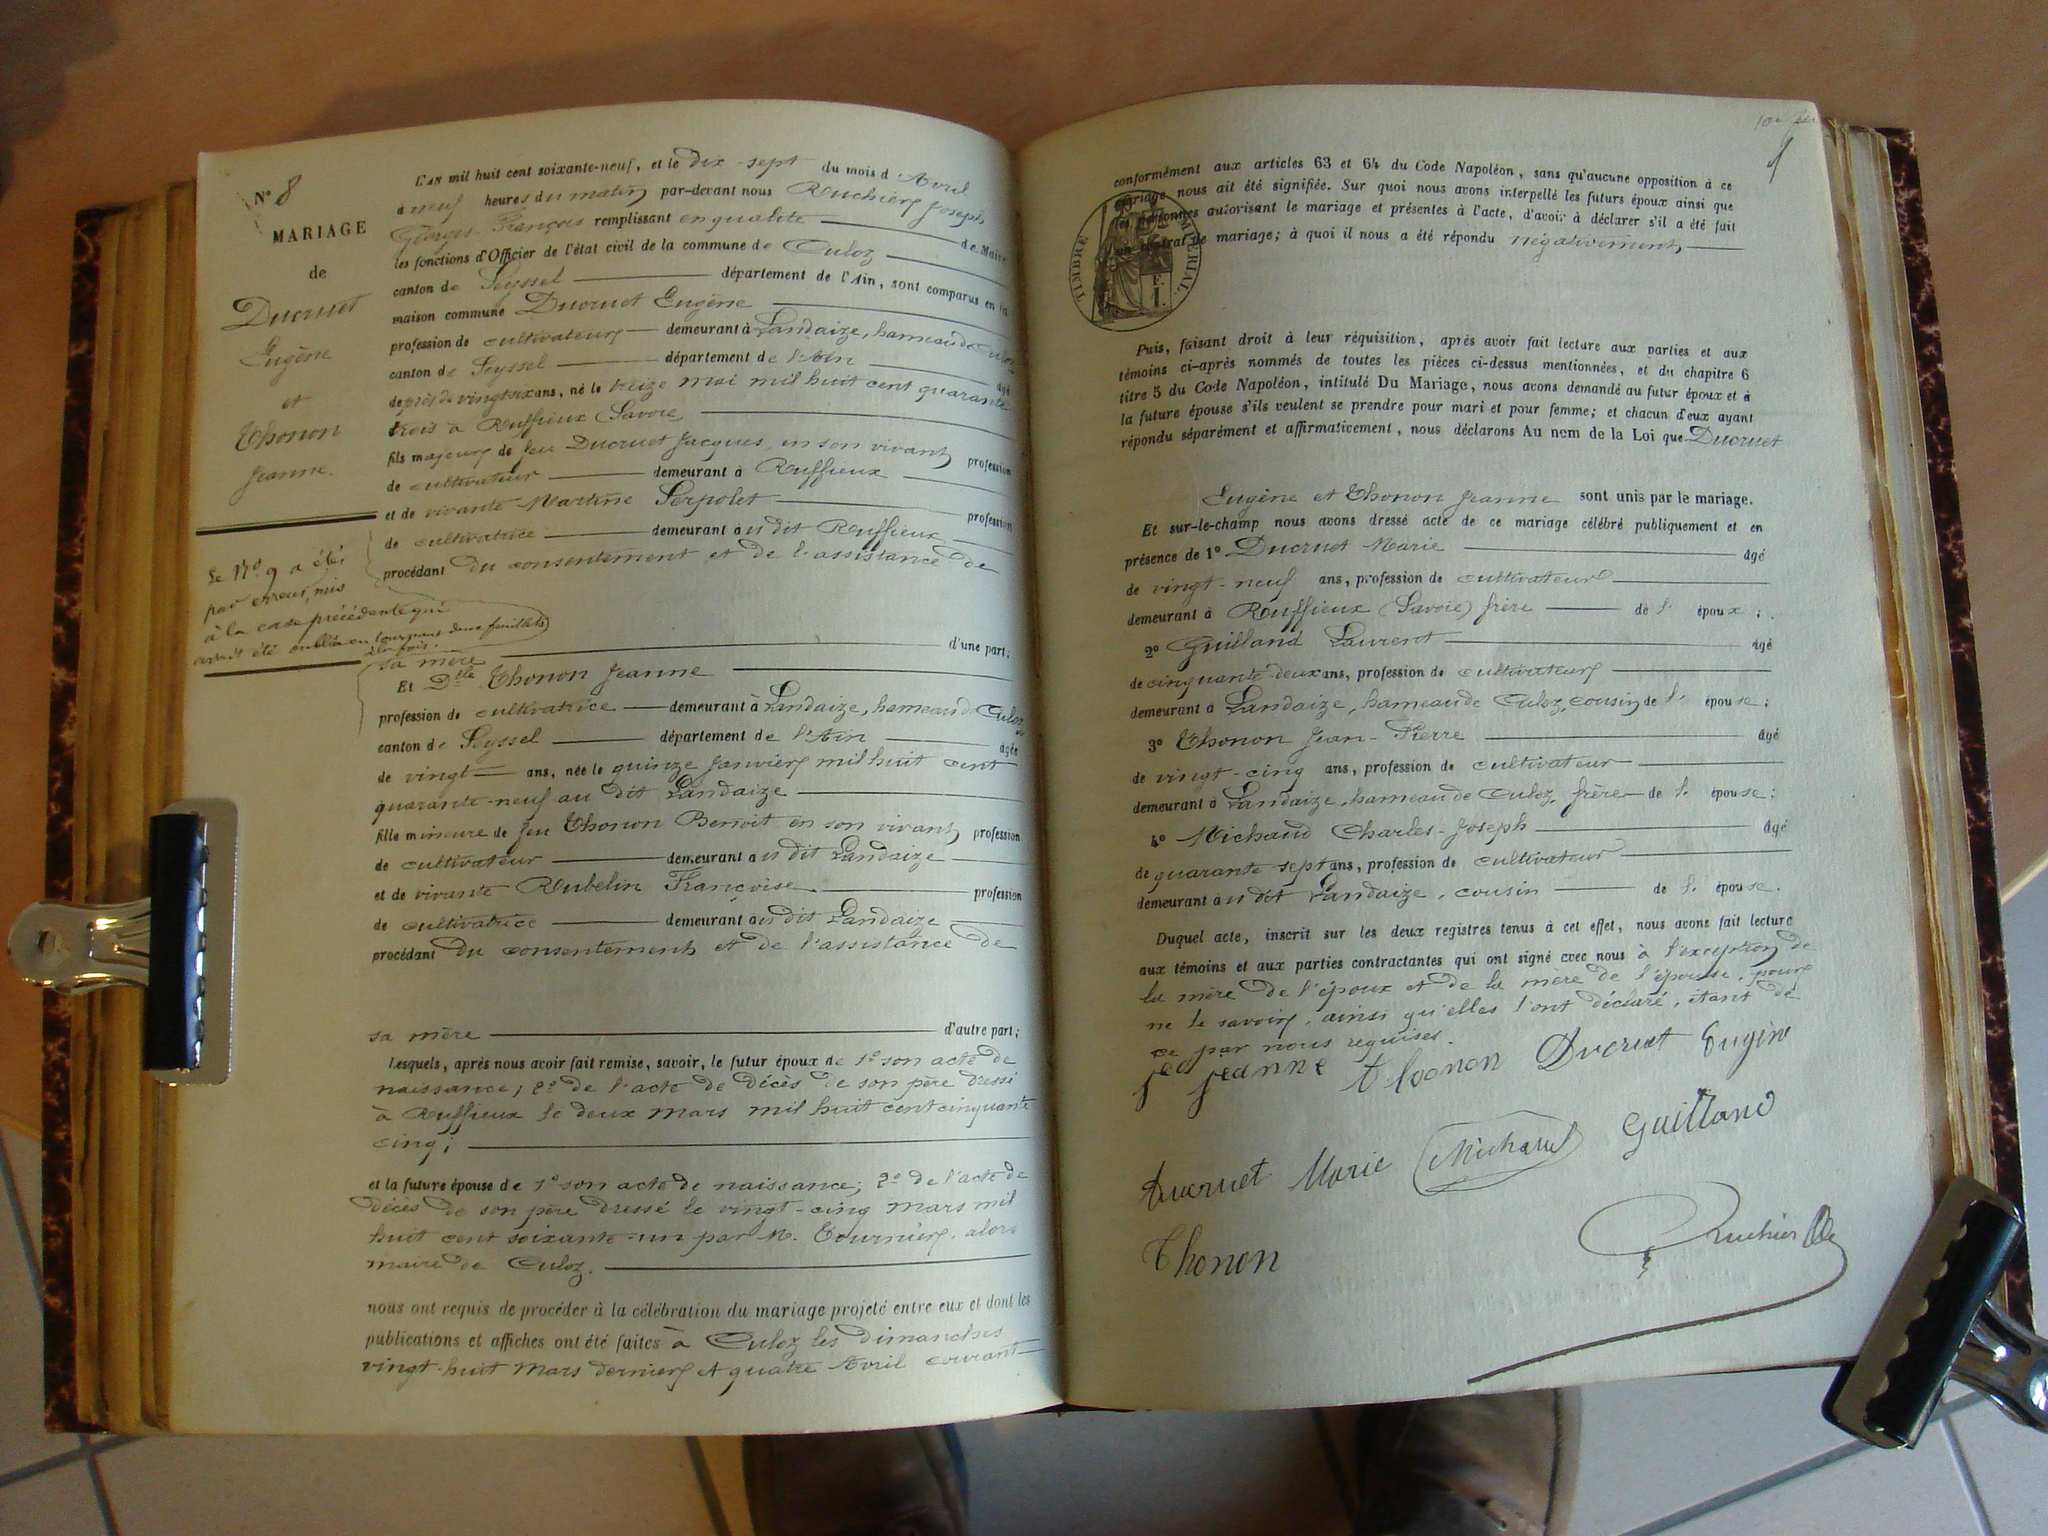 N° 8
MARIAGE
de
Ducruet
Eugène
et
Thonon
Jeanne.
Le N° 9 a été
par erreur, mis
à la case précédente qui
avait été oubliée en tournant deux feuillets
à la fois.
L'AN mil huit cent soixante-neuf, et le dix-sept du mois d'Avril
à neuf heures du matin par-devant nous Ruchier Joseph
Georges François remplissant en qualité de Maire
les fonctions d'Officier de l'état civil de la commune de Culoz
canton de Seyssel département de l'Ain, sont comparus en la
maison commune Ducruet Eugène
profession de cultivateur demeurant à Landaize, hameau de Culoz
canton de Seyssel département de l'Ain âgé
de près de vingt six ans, né le treize mai mil huit cent quarante
trois à Ruffieux (Savoie)
fils majeur de feu Ducruet Jacques, en son vivant profession
de cultivateur demeurant à Ruffieux
et de vivante Martine Serpolet profession
de cultivatrice demeurant au dit Ruffieux
procédant du consentement et de l'assistance de
sa mère d'une part;
Et Dlle Thonon Jeanne
profession de cultivatrice demeurant à Landaize, hameau de Culoz
canton de Seyssel département de l'Ain âgée
de vingt ans, née le quinze Janvier mil huit cent
quarante-neuf au dit Landaize
fille mineure de feu Thonon Benoit en son vivant profession
de cultivateur demeurant au dit Landaize
et de vivante Rubelin Françoise profession
de cultivatrice demeurant au dit Landaize
procédant du consentement et de l'assistance de
sa mère d'autre part;
Lesquels, après nous avoir fait remise, savoir, le futur époux de 1° son acte de
naissance; 2° de l'acte de décès de son père dressé
à Ruffieux le deux mars mil huit cent cinquante
cinq;
et la future épouse de 1° son acte de naissance; 2° de l'acte de
décès de son père dressé le vingt-cinq mars mil
huit cent soixante-un par M. Tournier, alors
maire de Culoz.
nous ont requis de procéder à la célébration du mariage projeté entre eux et dont les
publications et affiches ont été faites à Culoz les dimanches
vingt-huit mars dernier et quatre Avril courant
conformément aux articles 63 et 64 du Code Napoléon, sans qu'aucune opposition à ce
mariage nous ait été signifiée. Sur quoi nous avons interpellé les futurs époux ainsi que
les personnes autorisant le mariage et présentes à l'acte, d'avoir à déclarer s'il a été fait
un contrat de mariage; à quoi il nous a été répondu négativement
TIMBRE IMPÉRIAL
Puis, faisant droit à leur réquisition, après avoir fait lecture aux parties et aux
témoins ci-après nommés de toutes les pièces ci-dessus mentionnées, et du chapitre 6
titre 5 du Code Napoléon, intitulé Du Mariage, nous avons demandé au futur époux et à
la future épouse s'ils veulent se prendre pour mari et pour femme; et chacun d'eux ayant
répondu séparément et affirmativement, nous déclarons Au nom de la Loi que Ducruet
Eugène et Thonon Jeanne sont unis par le mariage.
Et sur-le-champ nous avons dressé acte de ce mariage célébré publiquement et en
présence de 1° Ducruet Marie âgé
de vingt-neuf ans, profession de cultivateur
demeurant à Ruffieux (Savoie) frère de l'époux;
2° Guilland Laurent âgé
de cinquante-deux ans, profession de cultivateur
demeurant à Landaize, hameau de Culoz, cousin de l'épouse;
3° Thonon Jean-Pierre âgé
de vingt-cinq ans, profession de cultivateur
demeurant à Landaize, hameau de Culoz, frère de l'épouse;
4° Michaud Charles-Joseph âgé
de quarante sept ans, profession de cultivateur
demeurant au dit Landaize, cousin de l'épouse.
Duquel acte, inscrit sur les deux registres tenus à cet effet, nous avons fait lecture
aux témoins et aux parties contractantes qui ont signé avec nous à l'exception de
la mère de l'époux et de la mère de l'épouse, pour
ne le savoir, ainsi qu'elles l'ont déclaré, étant de
ce par nous requises.
Jeanne Thonon Ducruet Eugène
Ducruet Marie Michaud Guilland
Thonon Ruchier